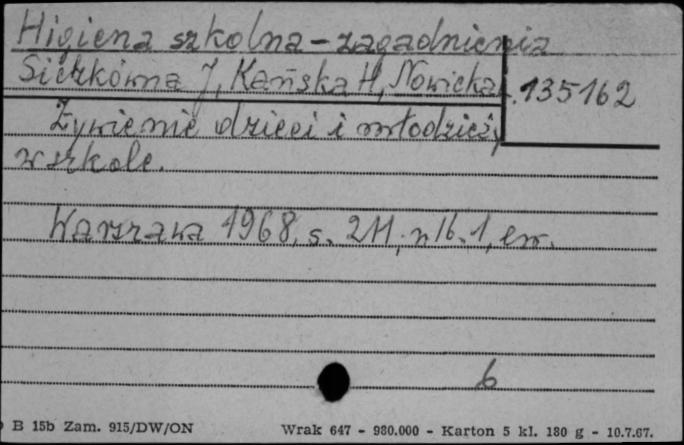 Higiena szkolna - zagadnienia
Siczkówna J, Kańska H, Nowicka
135162
Żywienie dzieci i młodzieży
w szkole.
Warszawa 1968, s. 211, nlb. 1, err.
6
B 15b Zam. 915/DW/ON Wrak 647 - 980.000 - Karton 5 kl. 180 g - 10.7.67.